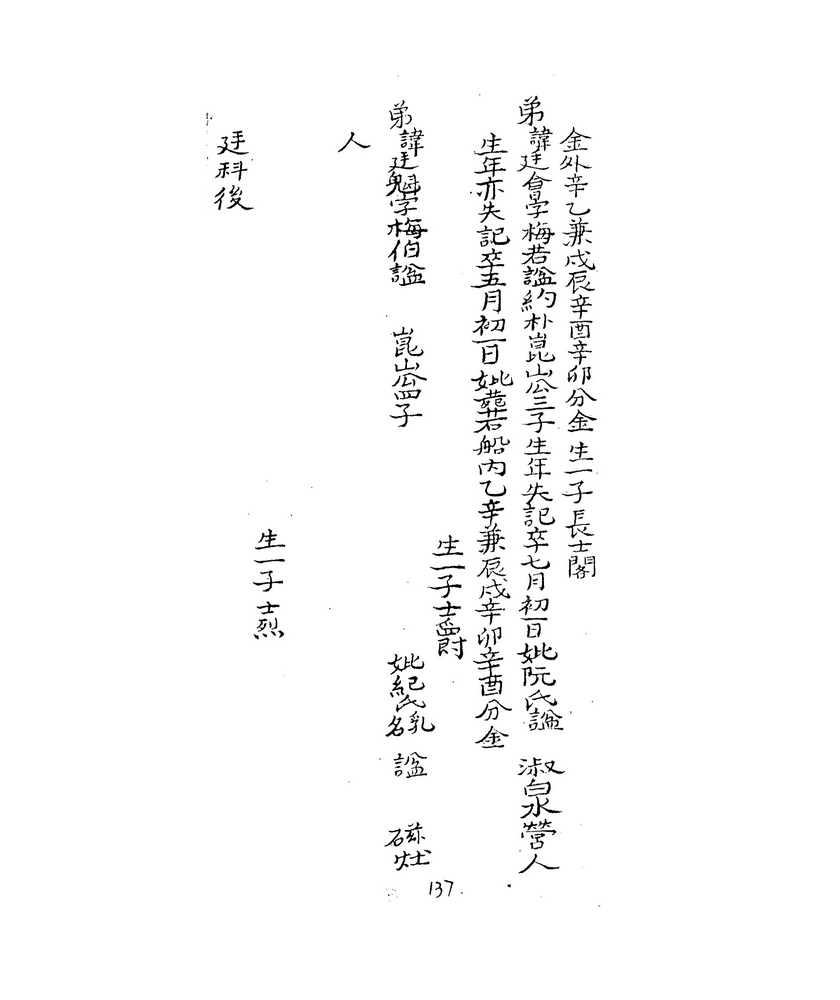 金外辛乙兼戌辰辛酉辛卯分金 生一子長士閣
弟諱廷會字梅若謚約朴崑山公三子生年失記卒七月初一日妣阮氏謚 淑白水營人
生年亦失記卒五月初一日妣葬若船內乙辛兼辰戌辛卯辛酉分金
生一子士爵
弟諱廷魁字梅伯謚 崑山公四子 妣紀氏名乳 謚 磁灶
人
生一子士烈
廷科後
137